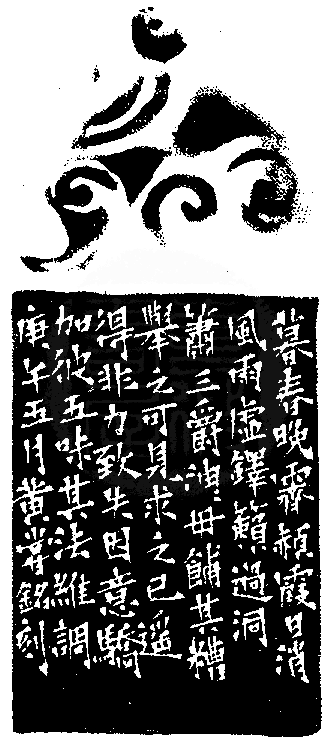 暮春晚霽頳霞日消
風雨虛鐸籟過洞
簫三爵油〻毋餔其糟
舉之可見求之已遥
得非力致失因意驕
加彼五味其法維調
庚午五月黄嘗銘刻